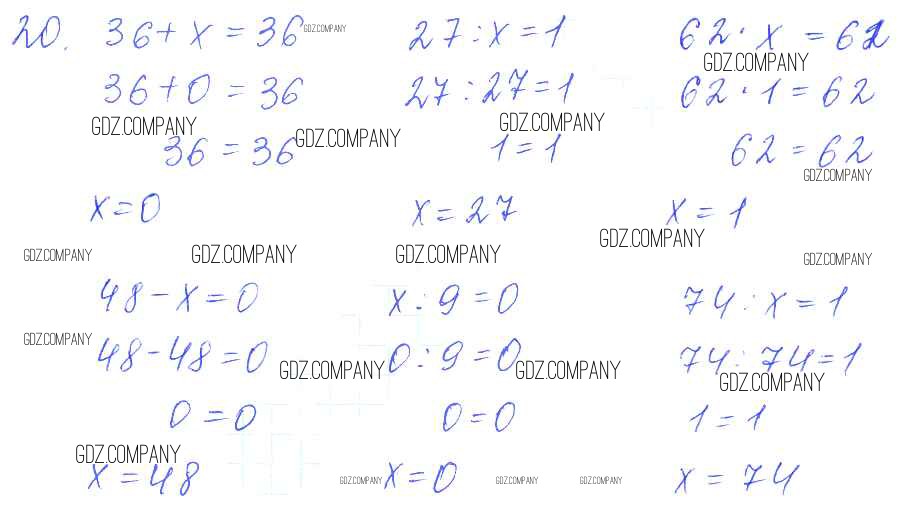 20. 36 + x = 36 GDZ.COMPANY 27 : x = 1 62 · x = 62
GDZ.COMPANY
36 + 0 = 36 27 : 27 = 1 62 · 1 = 62
GDZ.COMPANY GDZ.COMPANY GDZ.COMPANY
36 = 36 1 = 1 62 = 62
GDZ.COMPANY
x = 0 x = 27 x = 1
GDZ.COMPANY GDZ.COMPANY GDZ.COMPANY GDZ.COMPANY GDZ.COMPANY
48 - x = 0 x : 9 = 0 74 : x = 1
GDZ.COMPANY
48 - 48 = 0 0 : 9 = 0 74 : 74 = 1
GDZ.COMPANY GDZ.COMPANY GDZ.COMPANY
0 = 0 0 = 0 1 = 1
GDZ.COMPANY
x = 48 GDZ.COMPANY x = 0 GDZ.COMPANY GDZ.COMPANY x = 74